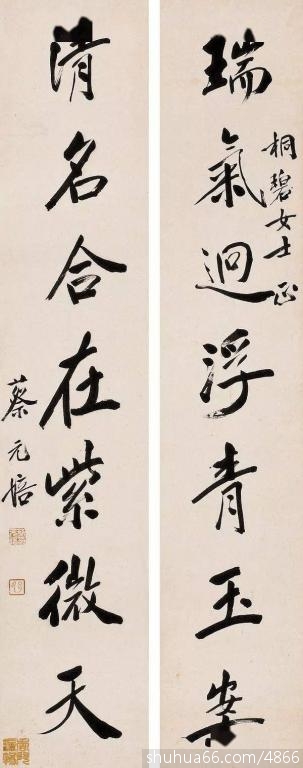 瑞氣迥浮青玉案
桐碧女士正
清名合在紫微天
蔡元培
shuhua66.com/4866